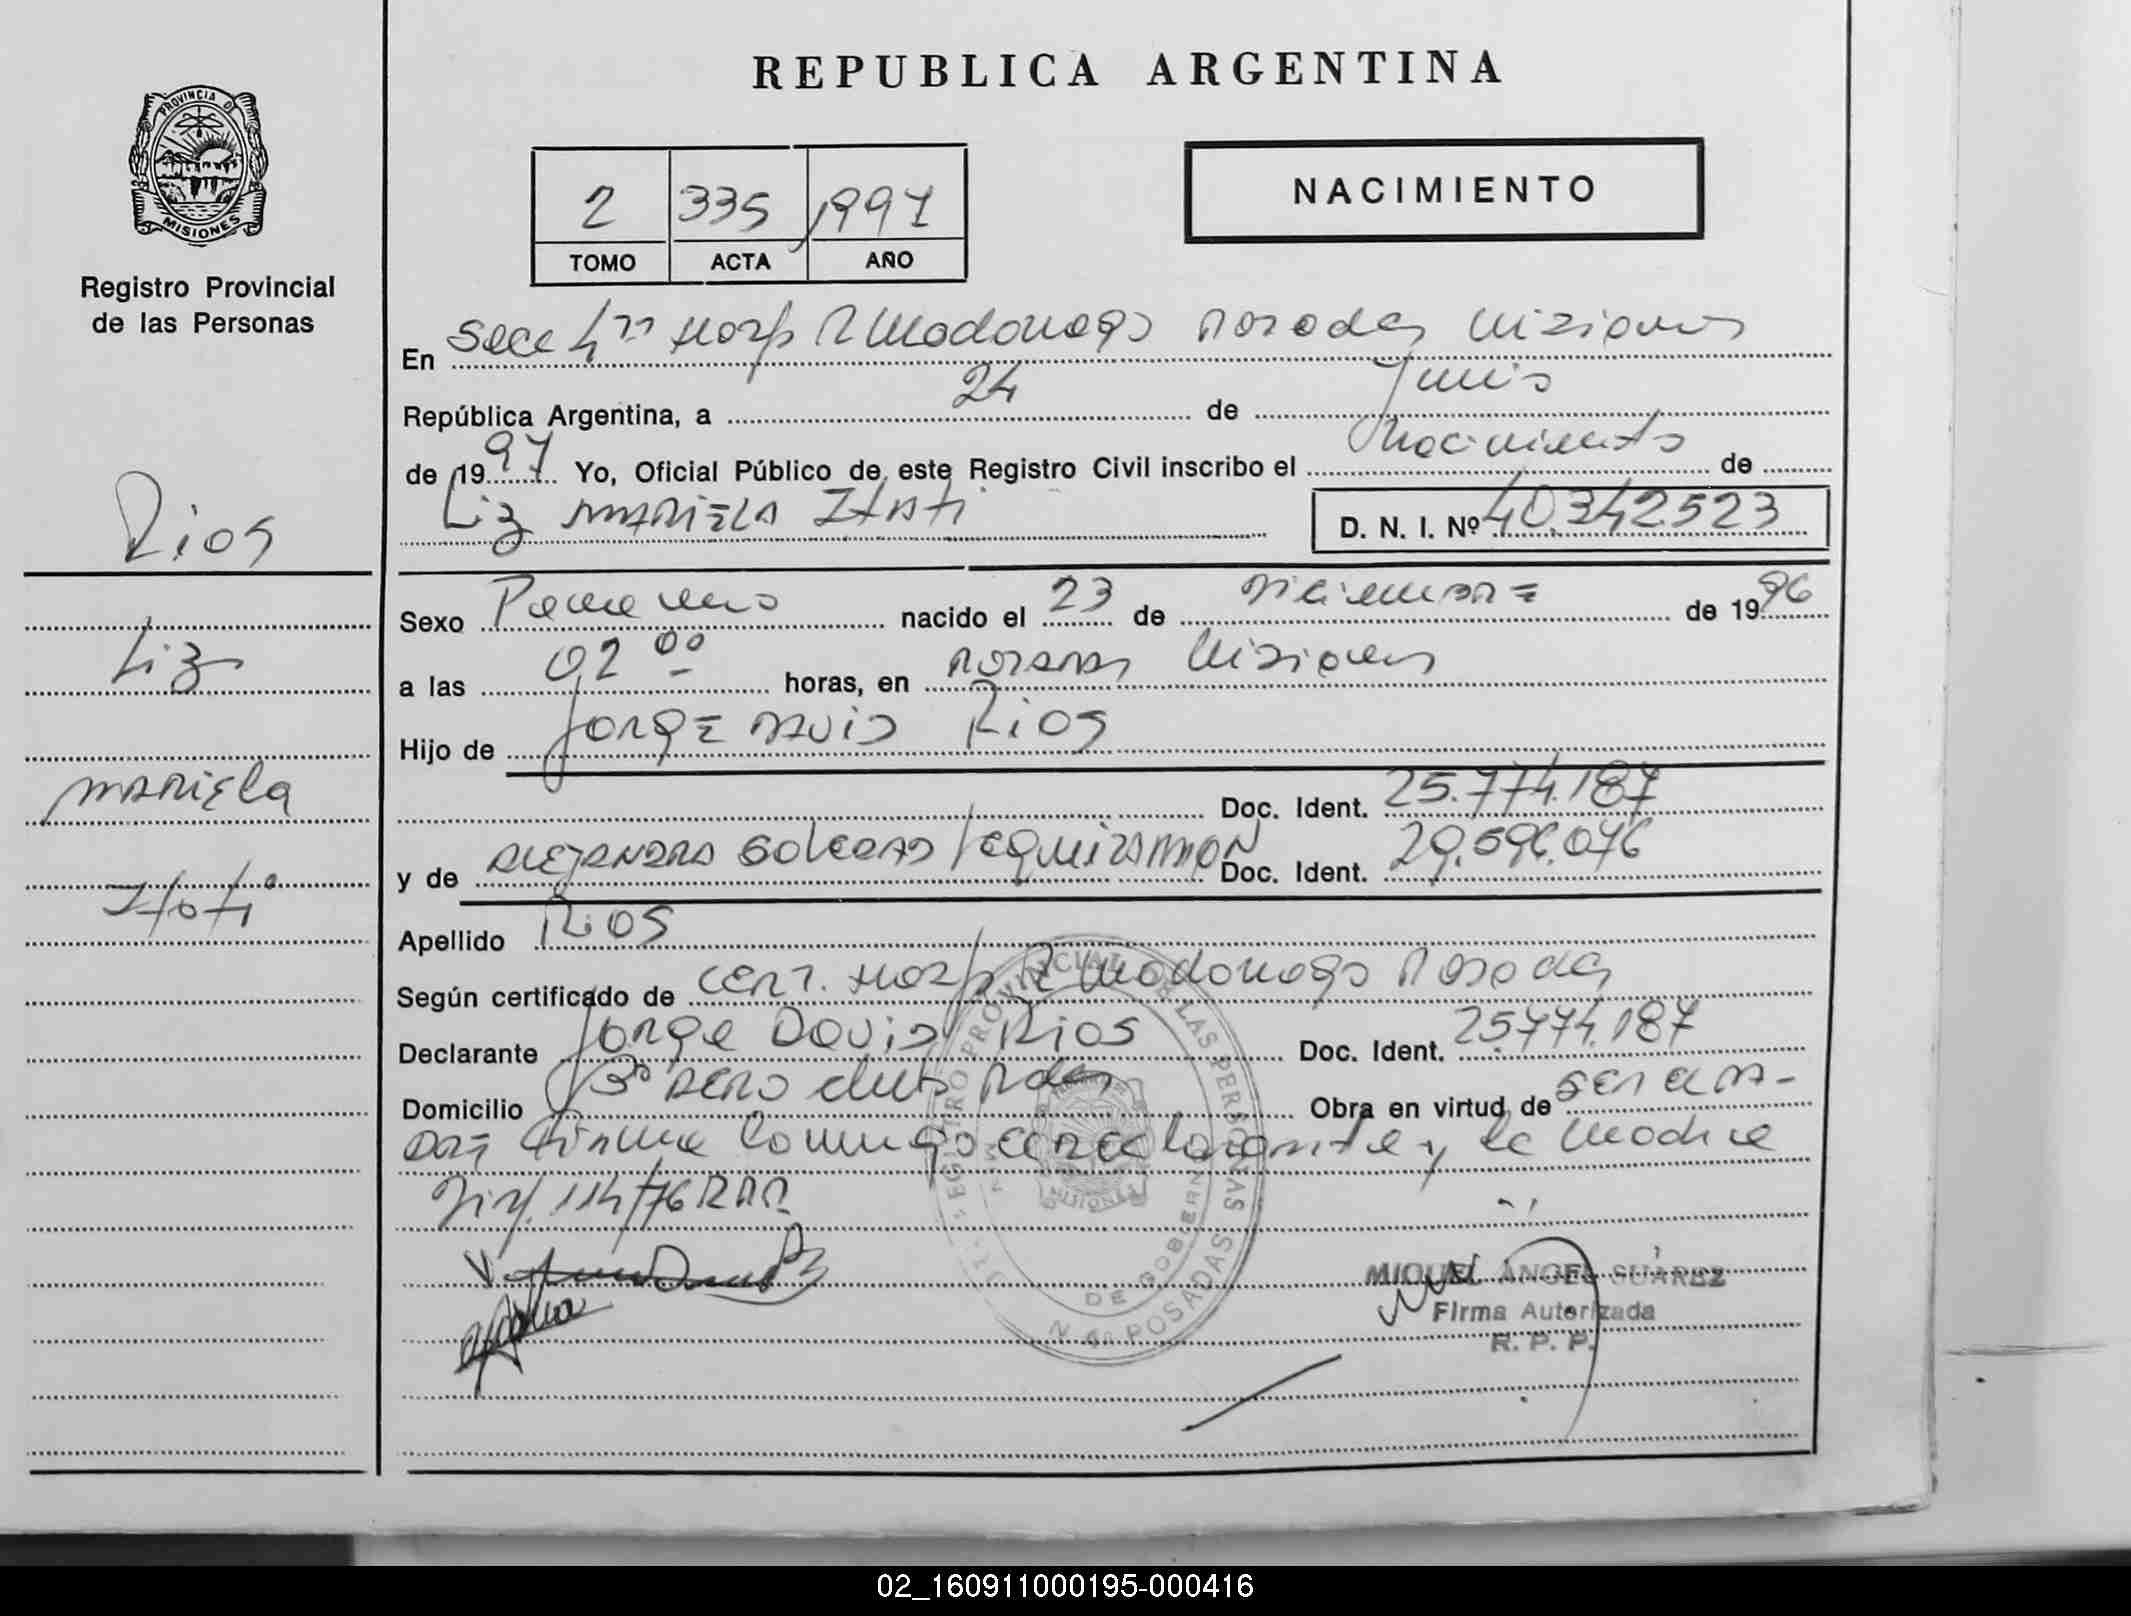 REPUBLICA ARGENTINA
PROVINCIA DE
MISIONES
Registro Provincial
de las Personas
2 335 1997
TOMO ACTA AÑO
NACIMIENTO
En Secc 4ta Hosp R Madariaga Posadas Misiones
República Argentina, a 24 de Junio
de 1997 Yo, Oficial Público de este Registro Civil inscribo el Nacimiento de
Liz MARIELA ITATI D. N. I. Nº 40.342.523
Rios
Liz
MARIELA
Itati
Sexo Femenino nacido el 23 de Diciembre de 1996
a las 02 00 horas, en POSADAS Misiones
Hijo de JORGE DAVID Rios
Doc. Ident. 25.774.187
y de ALEJANDRA Doc. Ident. 29.596.076
Apellido Rios
Según certificado de CERT. Hosp R Madariaga Posadas
Declarante Jorge David Rios Doc. Ident. 25.774.187
Domicilio Obra en virtud de
firma conmigo el declarante y la madre
114/76
REGISTRO PROVINCIAL DE LAS PERSONAS
MISIONES
POSADAS
MIGUEL ANGEL SUAREZ
Firma Autorizada
R. P. P.
02_160911000195-000416